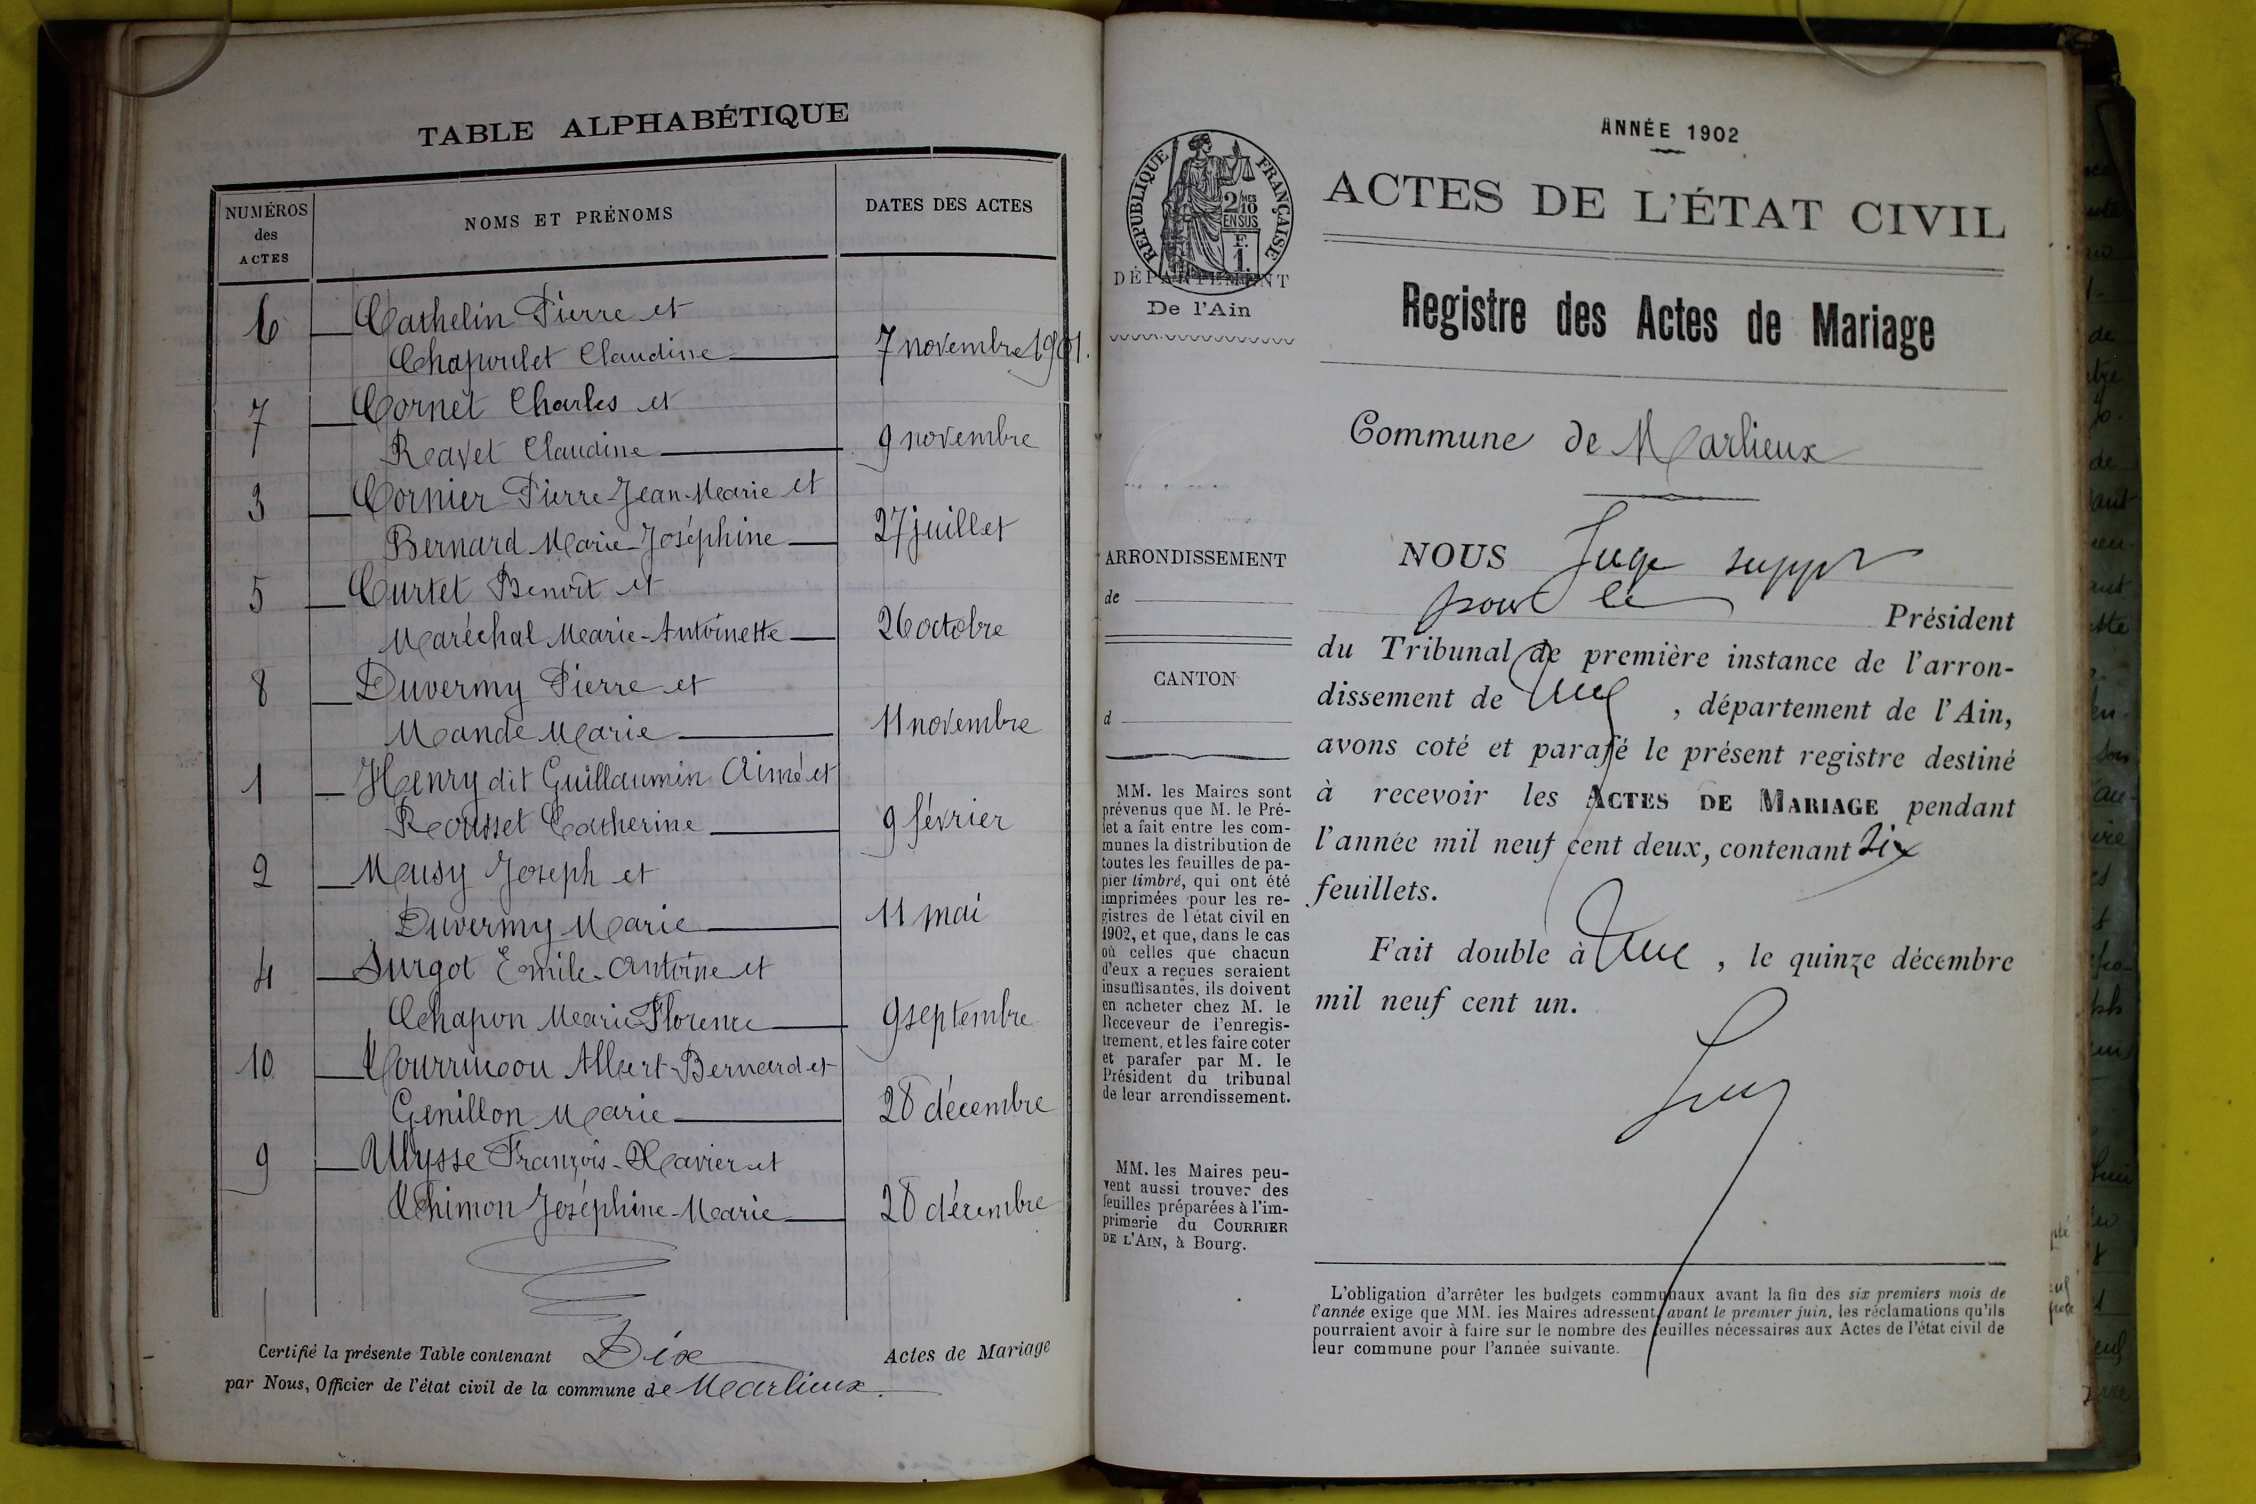 TABLE ALPHABÉTIQUE
NUMÉROS des ACTES
NOMS ET PRÉNOMS
DATES DES ACTES
6 Cathelin Pierre et
Chapoulet Claudine 7 novembre 1901.
7 Cornet Charles et
Ravet Claudine 9 novembre
3 Cornier Pierre-Jean-Marie et
Bernard Marie-Joséphine 27 juillet
5 Curtet Benoît et
Maréchal Marie-Antoinette 26 octobre
8 Duvermy Pierre et
Mande Marie 11 novembre
1 Henry dit Guillaumin Aimé et
Rousset Catherine 9 février
2 Musy Joseph et
Duvermy Marie 11 mai
4 Surgot Emile-Antoine et
Chapon Marie Florence 9 septembre
10 Albert-Bernard et
Genillon Marie 28 décembre
9 Ulysse François-Xavier et
Thimon Joséphine-Marie 28 décembre
Certifié la présente Table contenant Dix Actes de Mariage
par Nous, Officier de l'état civil de la commune de Marlieux.
RÉPUBLIQUE FRANÇAISE
2/10 MES
EN SUS
F.
1.
DÉPARTEMENT
De l'Ain
ARRONDISSEMENT
de
CANTON
d
MM. les Maires sont
prévenus que M. le Pré-
fet a fait entre les com-
munes la distribution de
toutes les feuilles de pa-
pier timbré, qui ont été
imprimées pour les re-
gistres de l'état civil en
1902, et que, dans le cas
où celles que chacun
d'eux a reçues seraient
insuffisantes, ils doivent
en acheter chez M. le
Receveur de l'enregis-
trement, et les faire coter
et parafer par M. le
Président du tribunal
de leur arrondissement.
MM. les Maires peu-
vent aussi trouver des
feuilles préparées à l'im-
primerie du COURRIER
DE L'AIN, à Bourg.
ANNÉE 1902
ACTES DE L'ÉTAT CIVIL
Registre des Actes de Mariage
Commune de Marlieux
NOUS Juge suppt
pour le Président
du Tribunal de première instance de l'arron-
dissement de , département de l'Ain,
avons coté et parafé le présent registre destiné
à recevoir les ACTES DE MARIAGE pendant
l'année mil neuf cent deux, contenant Six
feuillets.
Fait double à , le quinze décembre
mil neuf cent un.
L'obligation d'arrêter les budgets communaux avant la fin des six premiers mois de
l'année exige que MM. les Maires adressent, avant le premier juin, les réclamations qu'ils
pourraient avoir à faire sur le nombre des feuilles nécessaires aux Actes de l'état civil de
leur commune pour l'année suivante.